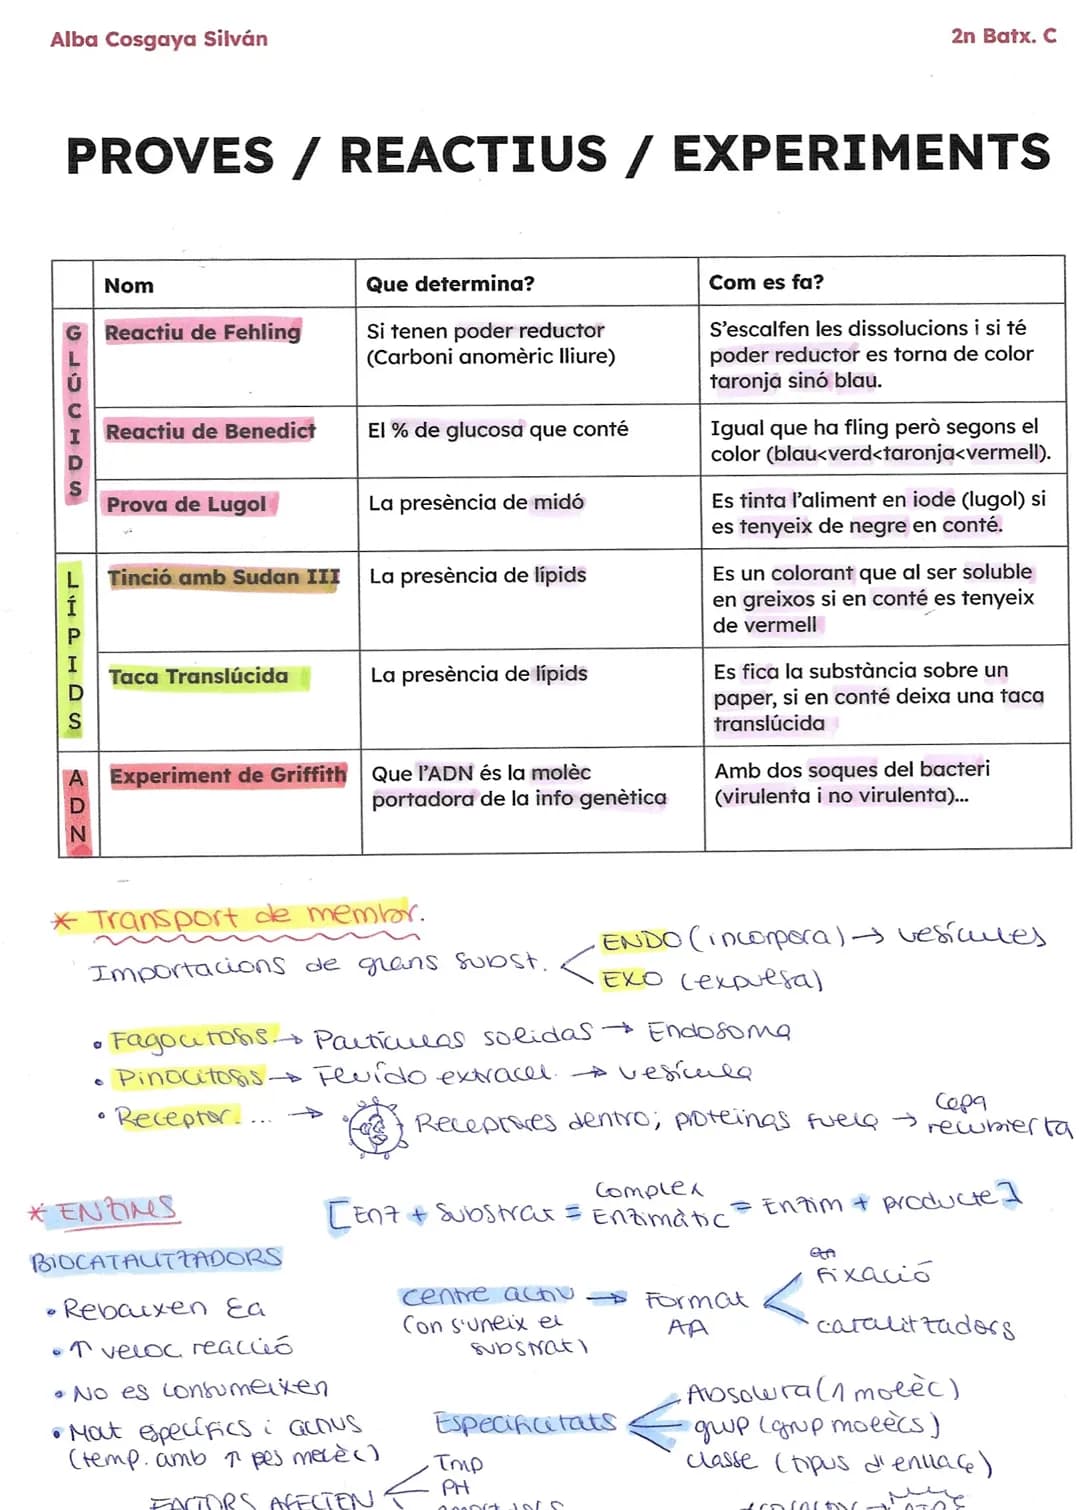 Alba Cosgaya Silván
2n Batx. C
PROVES / REACTIUS / EXPERIMENTS
Nom
Que determina?
Com es fa?
GLÚCIDS
Reactiu de Fehling
Si tenen poder reductor
(Carboni anomèric lliure)
S'escalfen les dissolucions i si té
poder reductor es torna de color
taronja sinó blau.
Reactiu de Benedict
El % de glucosa que conté
Igual que ha fling però segons el
color (blau<verd<taronja<vermell).
Prova de Lugol
La presència de midó
Es tinta l'aliment en iode (lugol) si
es tenyeix de negre en conté.
LÍPIDS
Tinció amb Sudan III
La presència de lípids
Es un colorant que al ser soluble
en greixos si en conté es tenyeix
de vermell
Taca Translúcida
La presència de lípids
Es fica la substància sobre un
paper, si en conté deixa una taca
translúcida
ADN
Experiment de Griffith
Que l'ADN és la molèc
portadora de la info genètica
Amb dos soques del bacteri
(virulenta i no virulenta)...
* Transport de membr.
Importacions de grans subst.
ENDO (incorpora) → vesícules
EXO (expulsa)
• Fagocitosis. → Partículas solidas → Endosoma
• Pinocitosis → Fluído extracel. → vesícula
• Receptor. ... → Receptores dentro; proteinas fuera → Capa
recubierta
* ENZIMS
[Enz + Substrat = Complex
Enzimàtic = Enzim + producte]
BIOCATALITZADORS
• Rebaixen Ea
• ↑ veloc reacció
• No es consumeixen
• Molt específics i actius
(temp. amb ↑ pes molèc)
centre actiu → Format
AA
(on s'uneix el
substrat)
Fixació
catalitzadors
Especificitats
Absoluta (1 molèc)
grup (grup molècs)
classe (tipus d'enllaç)
FACTORS AFECTEN
Tmp
PH